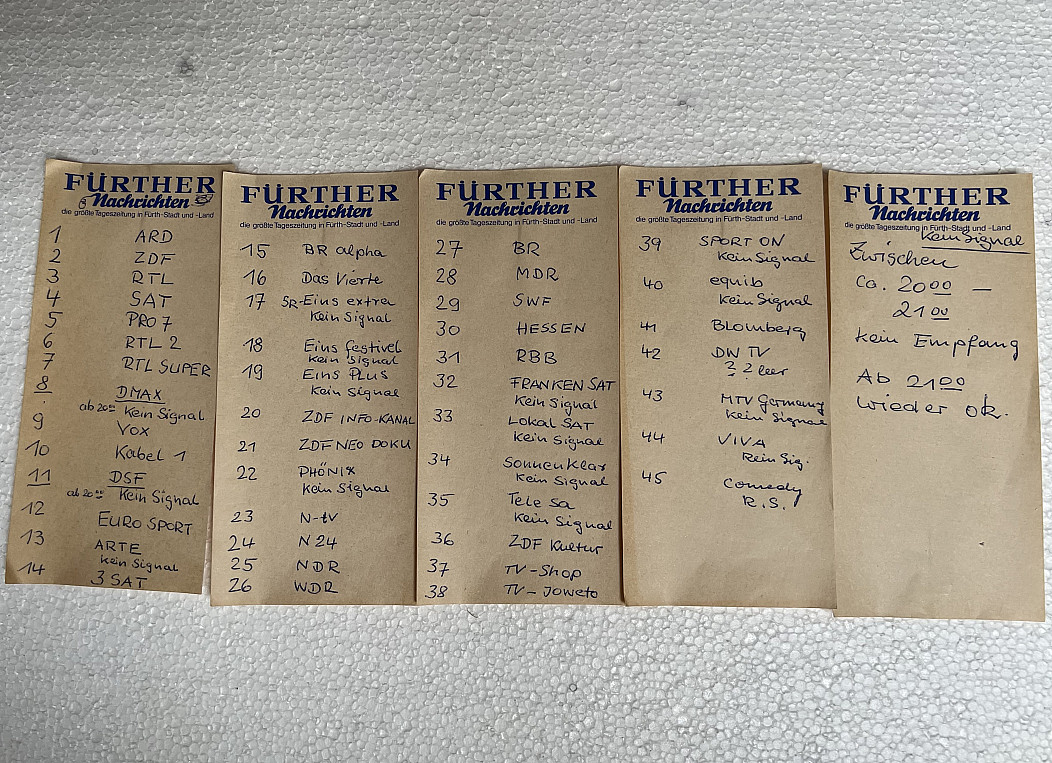 FÜRTHER
Nachrichten
die größte Tageszeitung in Fürth-Stadt und -Land
1 ARD
2 ZDF
3 RTL
4 SAT
5 PRO 7
6 RTL 2
7 RTL SUPER
8 DMAX
ab 20⁰⁰ Kein Signal
9 VOX
10 Kabel 1
11 DSF
ab 20⁰⁰ Kein Signal
12 EURO SPORT
13 ARTE
Kein Signal
14 3 SAT
FÜRTHER
Nachrichten
die größte Tageszeitung in Fürth-Stadt und -Land
15 BR alpha
16 Das Vierte
17 SR-Eins extra
Kein Signal
18 Eins festivel
Kein Signal
19 Eins PLUS
Kein Signal
20 ZDF INFO-KANAL
21 ZDF NEO DOKU
22 PHÖNIX
Kein Signal
23 N-tV
24 N 24
25 NDR
26 WDR
FÜRTHER
Nachrichten
die größte Tageszeitung in Fürth-Stadt und -Land
27 BR
28 MDR
29 SWF
30 HESSEN
31 RBB
32 FRANKEN SAT
Kein Signal
33 LOKAL SAT
Kein Signal
34 Sonnenklar
Kein Signal
35 Tele Sa
Kein Signal
36 ZDF Kultur
37 TV-Shop
38 TV-Joweto
FÜRTHER
Nachrichten
die größte Tageszeitung in Fürth-Stadt und -Land
39 SPORT ON
Kein Signal
40 equib
Kein Signal
41 Blomberg
42 DW TV
? ? leer
43 MTV Germany
Kein Signal
44 VIVA
Kein Sig.
45 Comedy
K.S.
FÜRTHER
Nachrichten
die größte Tageszeitung in Fürth-Stadt und -Land
Kein Signal
Zwischen
Ca. 20⁰⁰ –
21⁰⁰
kein Empfang
Ab 21⁰⁰
wieder ok.